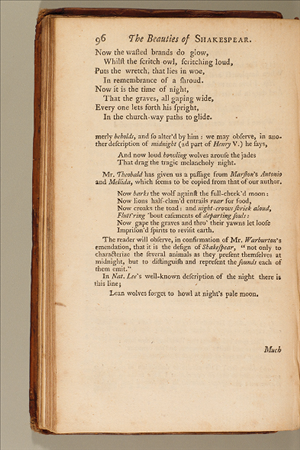 96 The Beauties of SHAKESPEAR.
Now the wasted brands do glow,
Whilst the scritch owl, scritching loud,
Puts the wretch, that lies in woe,
In remembrance of a shroud.
Now it is the time of night,
That the graves, all gaping wide,
Every one lets forth his spright,
In the church-way paths to glide.
merely beholds, and so alter'd by him: we may observe, in ano-
ther description of midnight (2d part of Henry V.) he says,
And now loud howling wolves arouse the jades
That drag the tragic melancholy night.
Mr. Theobald has given us a passage from Marston's Antonio
and Mellida, which seems to be copied from that of our author.
Now barks the wolf against the full-cheek'd moon:
Now lions half-clam'd entrails roar for food,
Now croaks the toad: and night-crows shriek aloud,
Flutt'ring 'bout casements of departing souls:
Now gape the graves and thro' their yawns let loose
Imprison'd spirits to revisit earth.
The reader will observe, in confirmation of Mr. Warburton's
emendation, that it is the design of Shakespear, "not only to
characterize the several animals as they present themselves at
midnight, but to distinguish and represent the sounds each of
them emit."
In Nat. Lee's well-known description of the night there is
this line;
Lean wolves forget to howl at night's pale moon.
Much